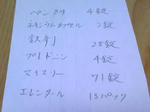 ペンタサ 4錠
ネキシウムカプセル 2錠
鉄剤 28錠
プレドニン 4錠
マイスリー 71錠
エレンタール 15パック